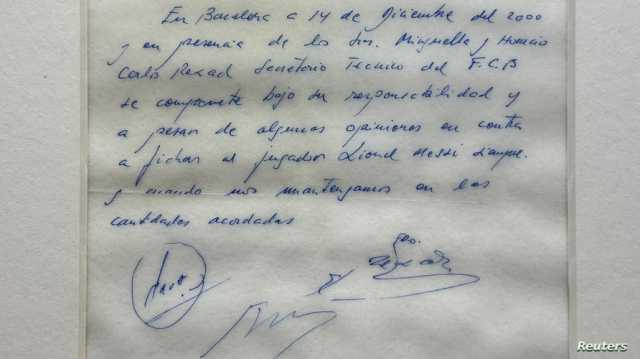 En Barcelona a 14 de Diciembre del 2000
y en presencia de los Srs. Minguella y Horacio
Carlos Rexach Secretario Tecnico del F.C.B
se compromete bajo su responsabilidad y
a pesar de algunas opiniones en contra
a fichar al jugador Lionel Messi siempre
y cuando nos mantengamos en las
cantidades acordadas
Reuters